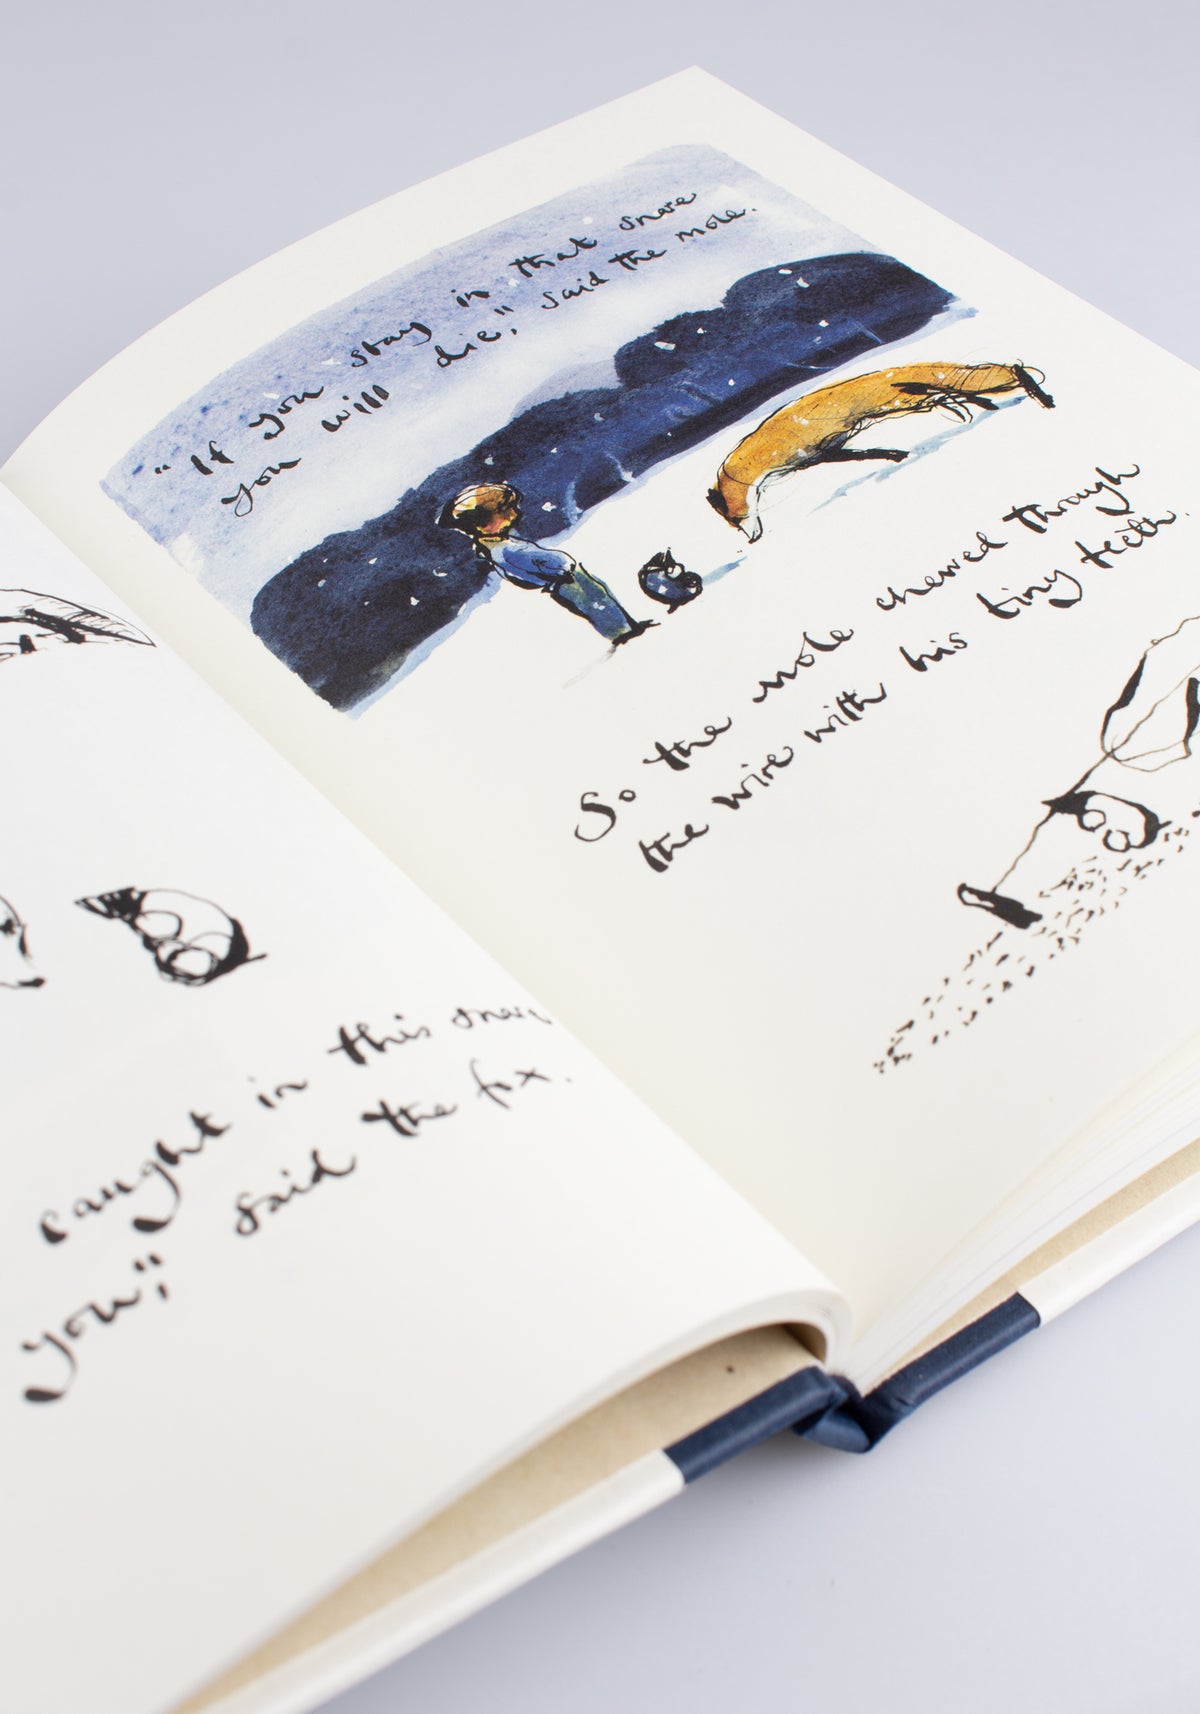 caught in this snare
you," said the fox.
"If you stay in that snare
you will die," said the mole.
So the mole chewed through
the wire with his tiny teeth.